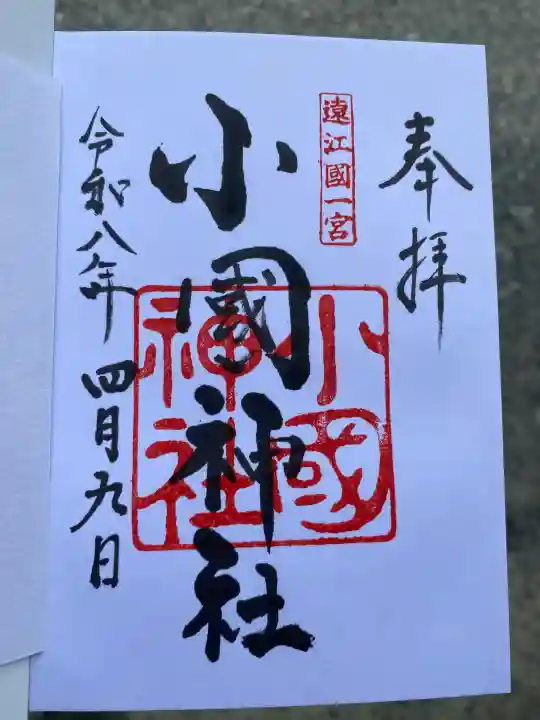 奉拝
遠江國一宮
小國神社
小國
神社
令和八年 四月九日